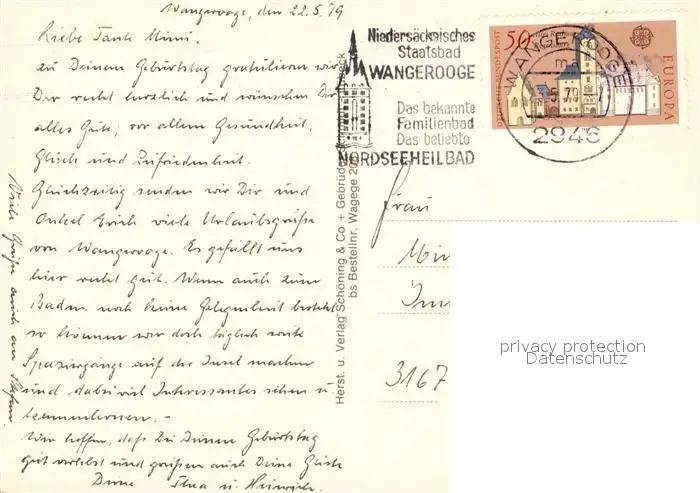 Wangerooge, den 22.5.79
Liebe Tante Mimi.
zu Deinem Geburtstag gratulieren wir
Dir recht herzlich und wünschen Dir
alles Gute; vor allem Gesundheit,
Glück und Zufriedenheit.
Gleichzeitig senden wir Dir und
Onkel Erich viele Urlaubsgrüße
von Wangerooge. Es gefällt uns
hier recht gut. Wenn auch zum
Baden noch keine Gelegenheit besteht
so können wir doch täglich weite
Spaziergänge auf der Insel machen
und dabei viel Interessantes sehen u.
kennenlernen. -
Wir hoffen, daß Du Deinen Geburtstag
gut verlebst und grüßen auch Deine Gäste
Deine Thea u. Heinrich.
Viele Grüße auch an Stefan
Herst. u. Verlag Schöning & Co + Gebrüder
bs Bestellnr. Wagege 20
Niedersächsisches
Staatsbad
WANGEROOGE
Das bekannte
Familienbad
Das beliebte
NORDSEEHEILBAD
DEUTSCHE BUNDESPOST
50
EUROPA
WANGEROOGE
ma
2946
Frau
3167
privacy protection
Datenschutz